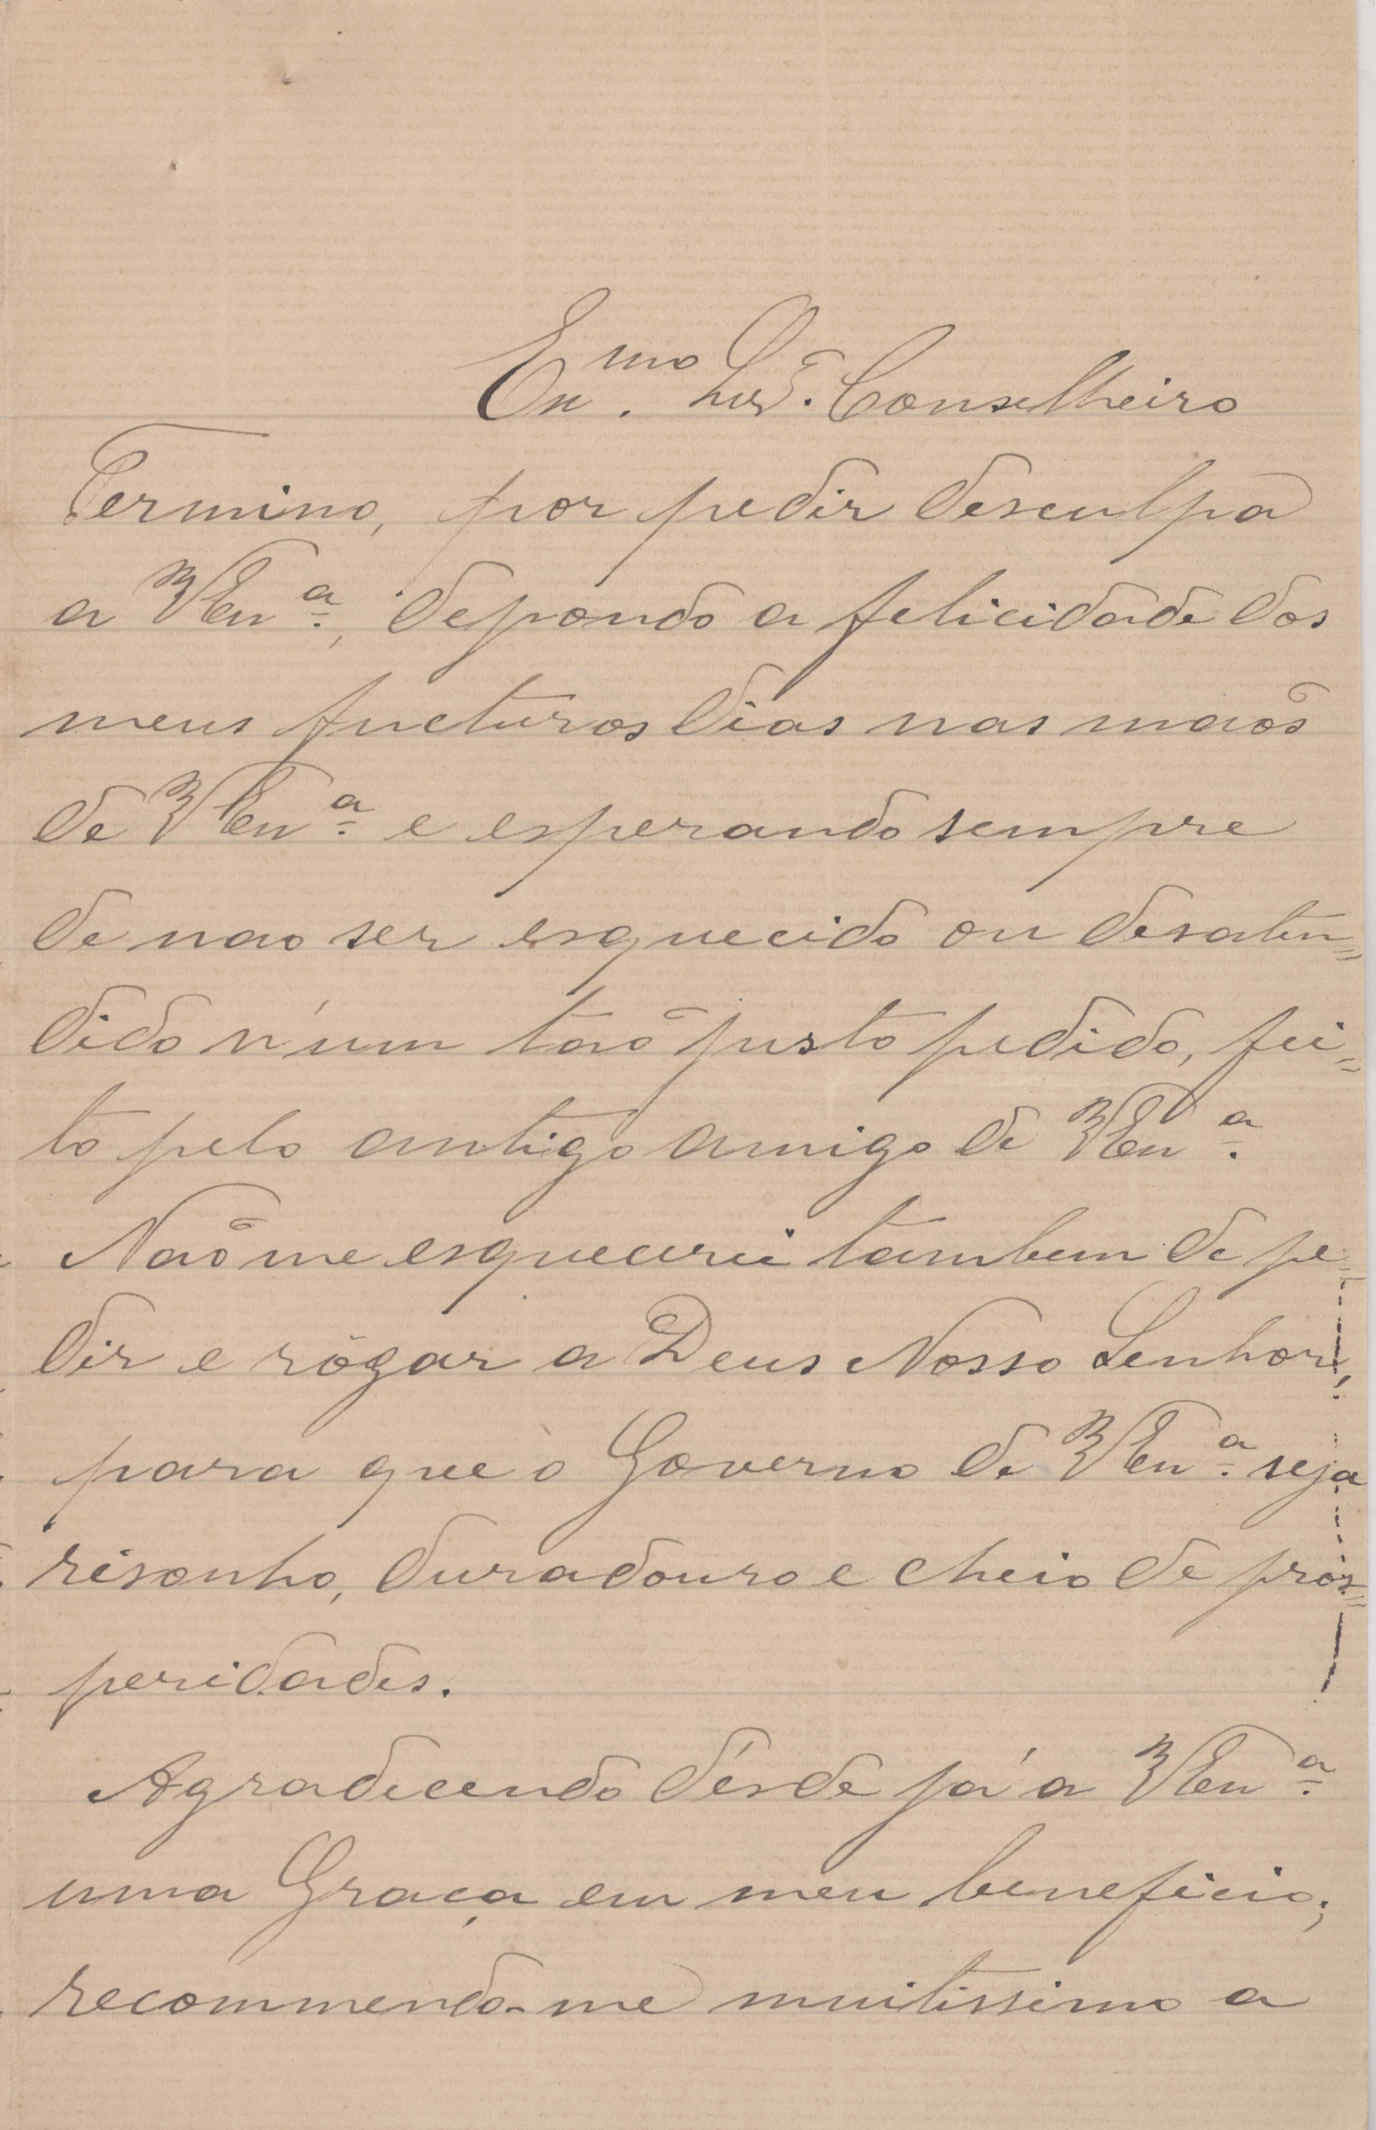 Ex.mo Snr. Conselheiro
Termino, por pedir desculpa
a VExª., depondo a felicidade dos
meus fucturos dias nas maõs
de VExª. e esperando sempre
de nao ser esquecido ou desaten=
dido n'um taõ justo pedido, fei=
to pelo antigo amigo de VExª.
Naõ me esquecerei tambem de pe=
dir e rogar a Deus Nosso Senhor,
para que o Governo de VExª. seja
risonho, duradouro e cheio de pros=
peridades.
Agradecendo désde já a VExª.
uma Graça em meu beneficio;
recommendo-me muitissimo a